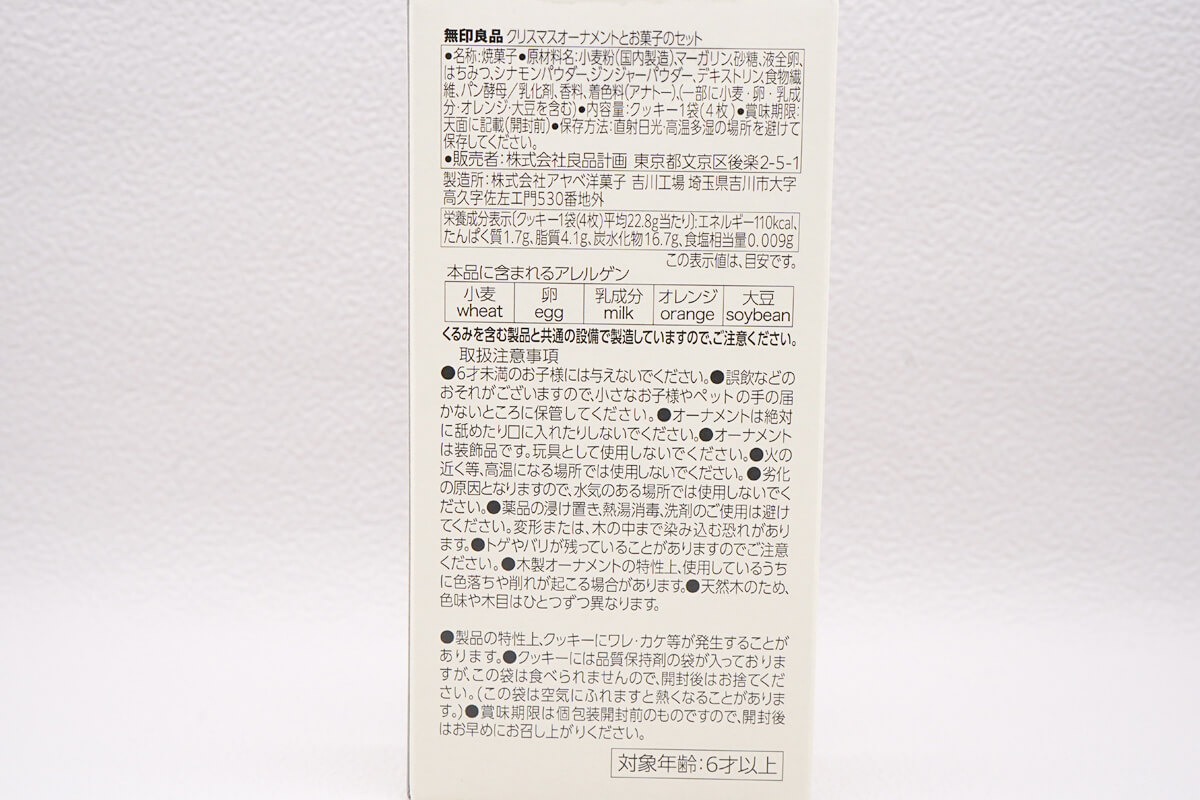 無印良品 クリスマスオーナメントとお菓子のセット
●名称:焼菓子●原材料名:小麦粉(国内製造)、マーガリン、砂糖、液全卵、
はちみつ、シナモンパウダー、ジンジャーパウダー、デキストリン、食物繊
維、パン酵母／乳化剤、香料、着色料(アナトー)、(一部に小麦・卵・乳成
分・オレンジ・大豆を含む)●内容量:クッキー1袋(4枚)●賞味期限:
天面に記載(開封前)●保存方法:直射日光・高温多湿の場所を避けて
保存してください。
●販売者:株式会社良品計画 東京都文京区後楽2-5-1
製造所:株式会社アヤベ洋菓子 吉川工場 埼玉県吉川市大字
高久字佐左エ門530番地外
栄養成分表示(クッキー1袋(4枚)平均22.8g当たり):エネルギー110kcal、
たんぱく質1.7g、脂質4.1g、炭水化物16.7g、食塩相当量0.009g
この表示値は、目安です。
本品に含まれるアレルゲン
小麦 卵 乳成分 オレンジ 大豆
wheat egg milk orange soybean
くるみを含む製品と共通の設備で製造していますので、ご注意ください。
取扱注意事項
●6才未満のお子様には与えないでください。●誤飲などの
おそれがございますので、小さなお子様やペットの手の届
かないところに保管してください。●オーナメントは絶対
に舐めたり口に入れたりしないでください。●オーナメント
は装飾品です。玩具として使用しないでください。●火の
近く等、高温になる場所では使用しないでください。●劣化
の原因となりますので、水気のある場所では使用しないでく
ださい。●薬品の浸け置き、熱湯消毒、洗剤のご使用は避け
てください。変形または、木の中まで染み込む恐れがあり
ます。●トゲやバリが残っていることがありますのでご注意
ください。●木製オーナメントの特性上、使用しているうち
に色落ちや削れが起こる場合があります。●天然木のため、
色味や木目はひとつずつ異なります。
●製品の特性上、クッキーにワレ・カケ等が発生することが
あります。●クッキーには品質保持剤の袋が入っておりま
すが、この袋は食べられませんので、開封後はお捨てくだ
さい。(この袋は空気にふれますと熱くなることがありま
す。)●賞味期限は個包装開封前のものですので、開封後
はお早めにお召し上がりください。
対象年齢:6才以上